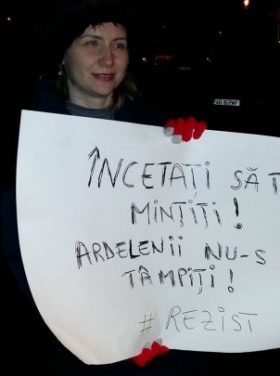 ÎNCETAȚI SĂ
MINȚIȚI!
ARDELENII NU-S
TÂMPIȚI!
# REZIST